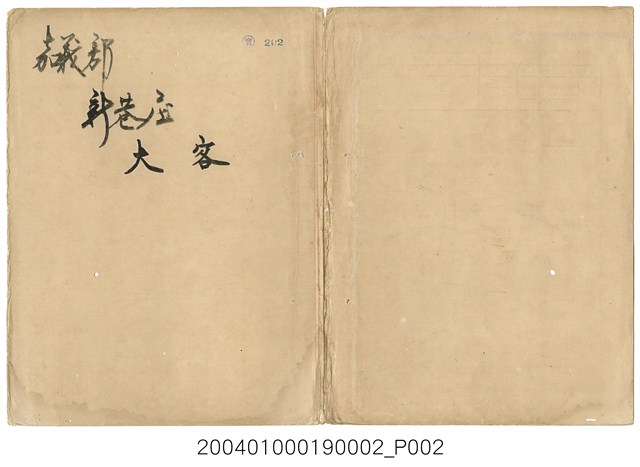 嘉義郡
202
新巷庄
大 客
200401000190002_P002